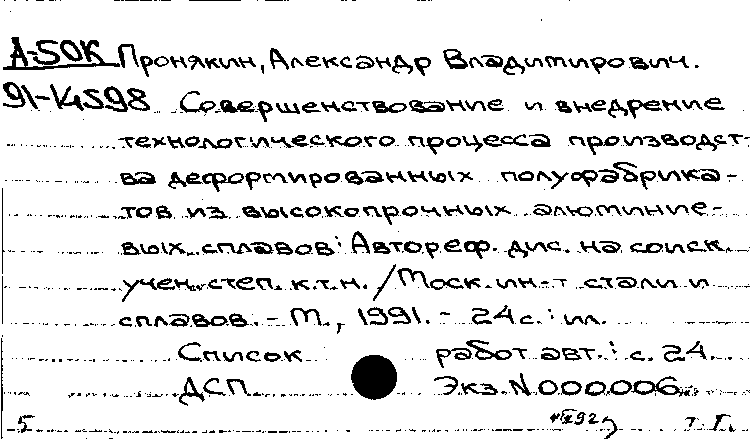 А-50К Пронякин, Александр Владимирович.
91-14598 Совершенствование и внедрение
технологического процесса производст-
ва деформированных полуфабрика-
тов из высокопрочных алюминие-
вых сплавов: Автореф. дис. на соиск.
учен. степ. к.т.н. / Моск. ин-т стали и
сплавов. - М., 1991. - 24 с.: ил.
Список работ авт.: с. 24.
ДСП Экз. N 000006.
5 т. Г.